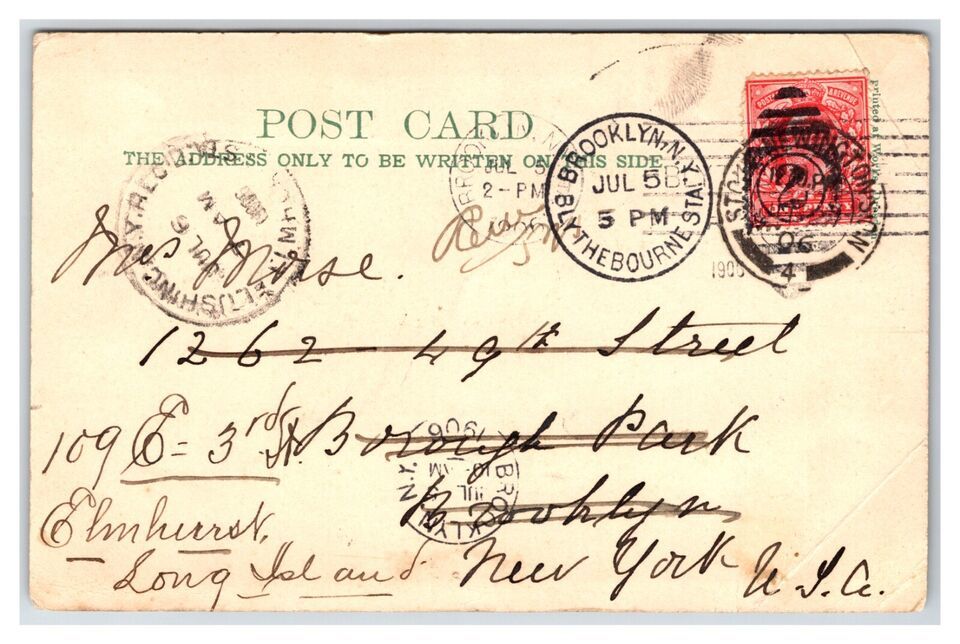 POST CARD
THE ADDRESS ONLY TO BE WRITTEN ON THIS SIDE
Printed at
POSTAGE & REVENUE
BROOKLYN, N.Y.
JUL 5
2-PM
BROOKLYN, N.Y.
JUL 5
5 PM
BLYTHEBOURNE STA.
STOKE NEWINGTON
06
4
1906
FLUSHING, N.Y. REC'D
JUL 6
1906
Mrs Morse.
1262 - 49th Street
109 E = 3rd St. Borough Park
Elmhurst, Brooklyn
Long Island New York U.S.A.
BROOKLYN N.Y.
JUL
AM
1906